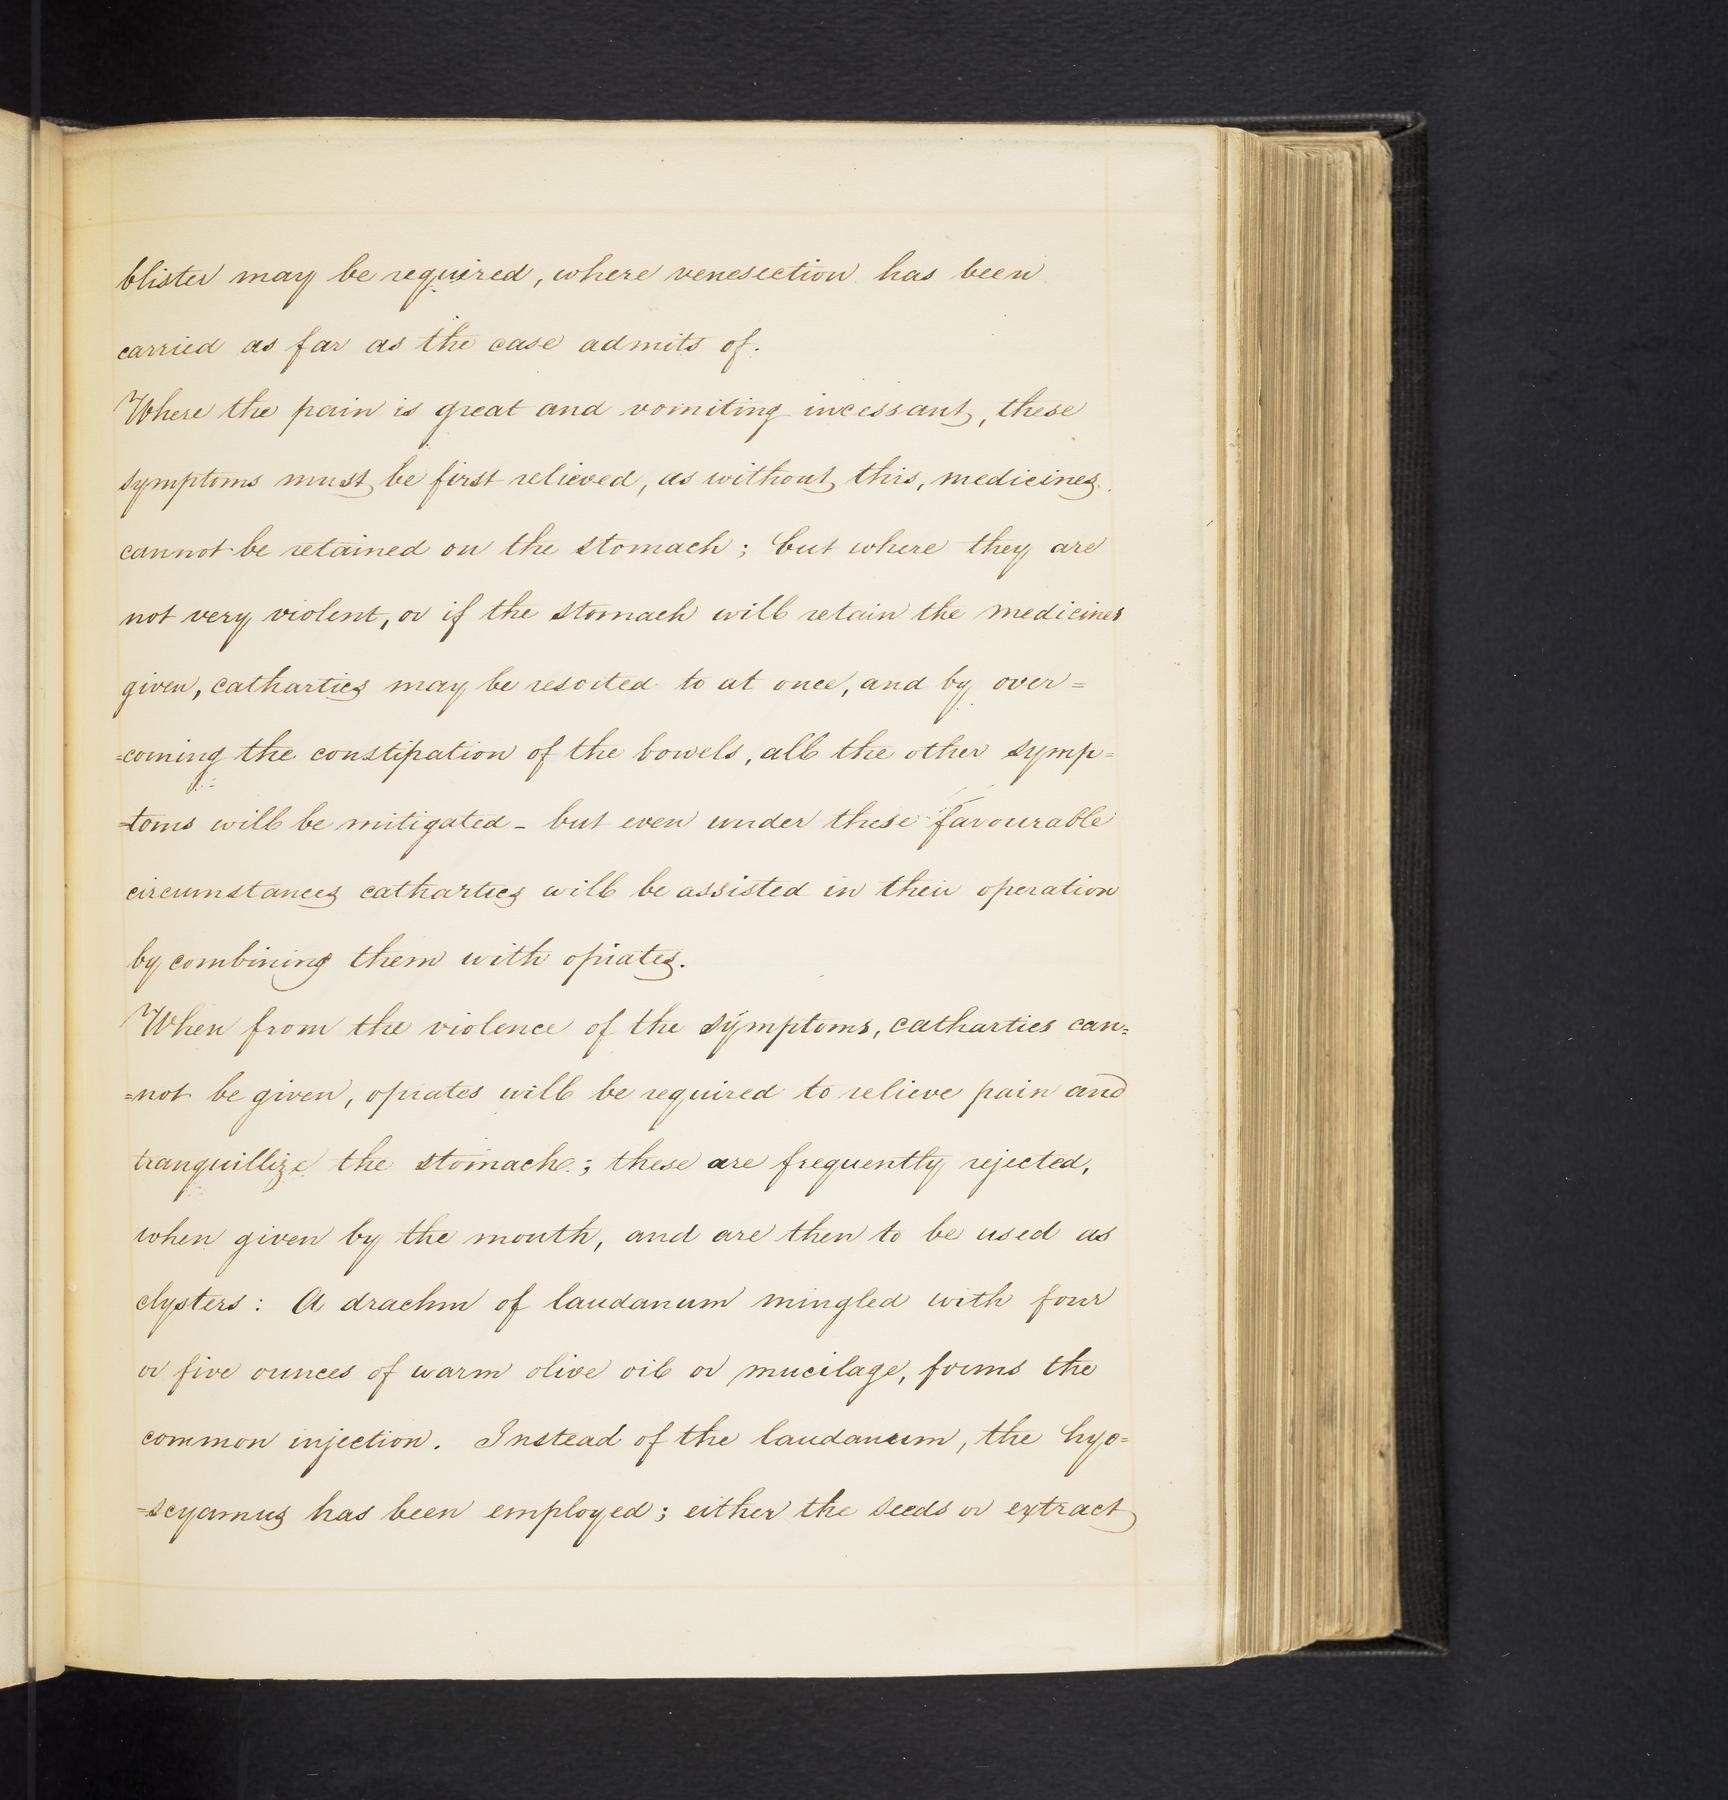 blister may be required, where venesection has been
carried as far as the case admits of.
Where the pain is great and vomiting incessant, these
symptoms must be first relieved, as without this, medicines
cannot be retained on the stomach; but where they are
not very violent, or if the stomach will retain the medicines
given, cathartics may be resorted to at once, and by over=
=coming the constipation of the bowels, all the other symp=
=toms will be mitigated - but even under these favourable
circumstances cathartics will be assisted in their operation
by combining them with opiates.
When from the violence of the symptoms, cathartics can=
=not be given, opiates will be required to relieve pain and
tranquillize the stomach; these are frequently rejected,
when given by the mouth, and are then to be used as
clysters: A drachm of laudanum mingled with four
or five ounces of warm olive oil or mucilage, forms the
common injection. Instead of the laudanum, the hyo=
=scyamus has been employed; either the seeds or extract